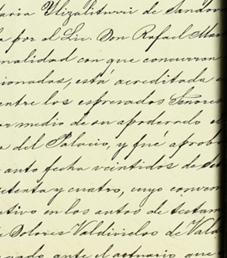 daria Ulizaliturri de Sandov
a por el Lic. Don Rafael Mar
nalidad con que concurran
cionados, está acreditada
entre los expresados Señores
or medio de su apoderado
a del Palacio, y fué aprob
anto fecha veintidos de
setenta y cuatro, cuyo conven
ctivo en los autos de testam
Dolores Valdivielso de Vald
gado ante el actuario que